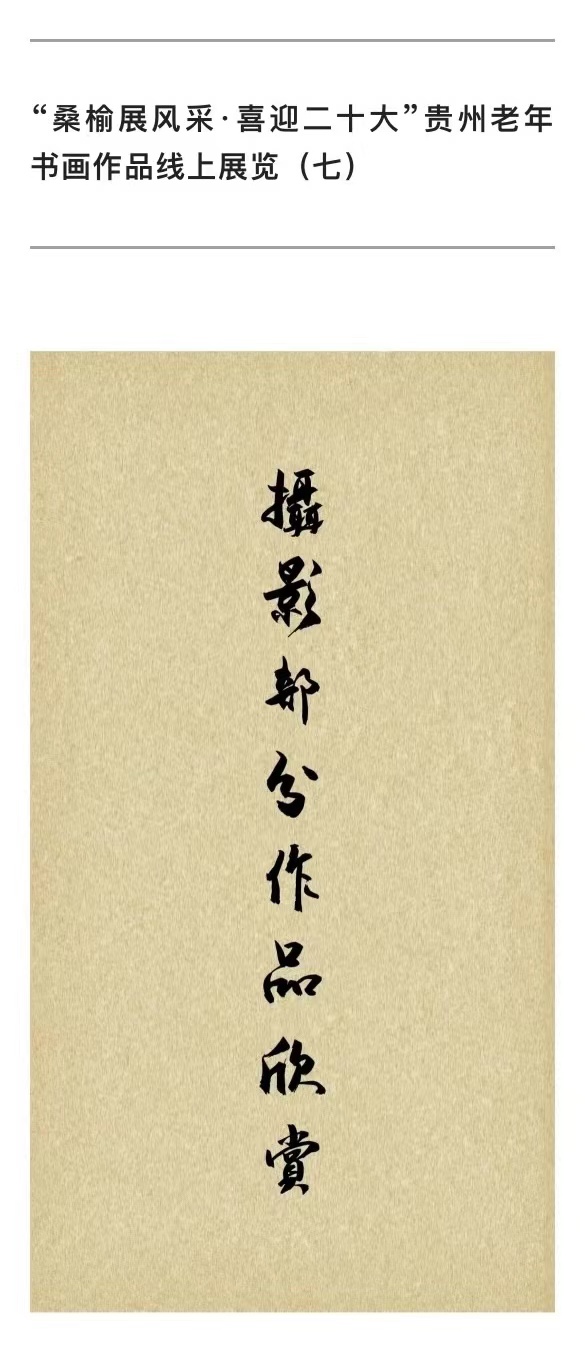 “桑榆展风采·喜迎二十大”贵州老年
书画作品线上展览（七）
攝影部分作品欣赏